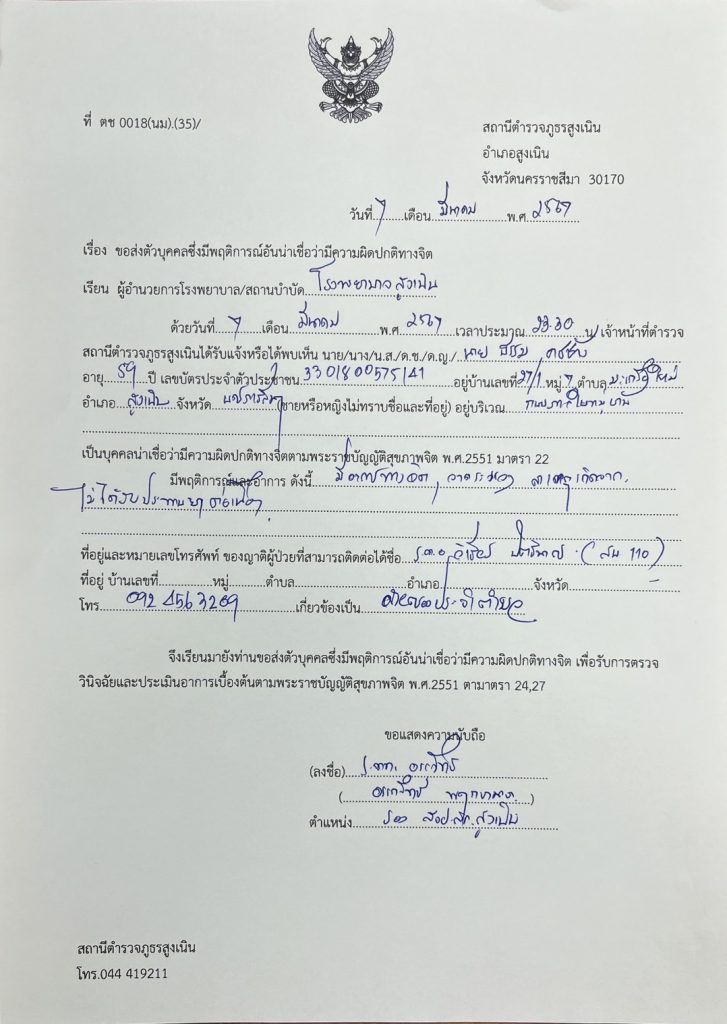 ที่ ตช 0018(นม).(35)/
สถานีตำรวจภูธรสูงเนิน
อำเภอสูงเนิน
จังหวัดนครราชสีมา 30170
วันที่ 7 เดือน มีนาคม พ.ศ. 2567
เรื่อง ขอส่งตัวบุคคลซึ่งมีพฤติการณ์อันน่าเชื่อว่ามีความผิดปกติทางจิต
เรียน ผู้อำนวยการโรงพยาบาล/สถานบำบัด โรงพยาบาลสูงเนิน
ด้วยวันที่ 7 เดือน มีนาคม พ.ศ. 2567 เวลาประมาณ 22.30 น. เจ้าหน้าที่ตำรวจ
สถานีตำรวจภูธรสูงเนินได้รับแจ้งหรือได้พบเห็น นาย/นาง/น.ส./ด.ช./ด.ญ./ นาย
อายุ 59 ปี เลขบัตรประจำตัวประชาชน 3301800575141 อยู่บ้านเลขที่ 27/1 หมู่ 7 ตำบล มะเกลือใหม่
อำเภอ สูงเนิน จังหวัด นครราชสีมา (ชายหรือหญิงไม่ทราบชื่อและที่อยู่) อยู่บริเวณ
เป็นบุคคลน่าเชื่อว่ามีความผิดปกติทางจิตตามพระราชบัญญัติสุขภาพจิต พ.ศ.2551 มาตรา 22
มีพฤติการณ์และอาการ ดังนี้ มีอาการทางจิต, อาละวาด สาเหตุเกิดจาก
ไม่ได้รับประทานยาต่อเนื่อง
ที่อยู่และหมายเลขโทรศัพท์ ของญาติผู้ป่วยที่สามารถติดต่อได้ชื่อ ร.ต.อ. วิเชียร (สน 110)
ที่อยู่ บ้านเลขที่ หมู่ ตำบล อำเภอ จังหวัด
โทร. 092 4563289 เกี่ยวข้องเป็น ตำรวจประจำตำบล
จึงเรียนมายังท่านขอส่งตัวบุคคลซึ่งมีพฤติการณ์อันน่าเชื่อว่ามีความผิดปกติทางจิต เพื่อรับการตรวจ
วินิจฉัยและประเมินอาการเบื้องต้นตามพระราชบัญญัติสุขภาพจิต พ.ศ.2551 ตามาตรา 24,27
ขอแสดงความนับถือ
(ลงชื่อ) ร.ต.ท.
ตำแหน่ง รอง สวป.สภ.สูงเนิน
สถานีตำรวจภูธรสูงเนิน
โทร.044 419211